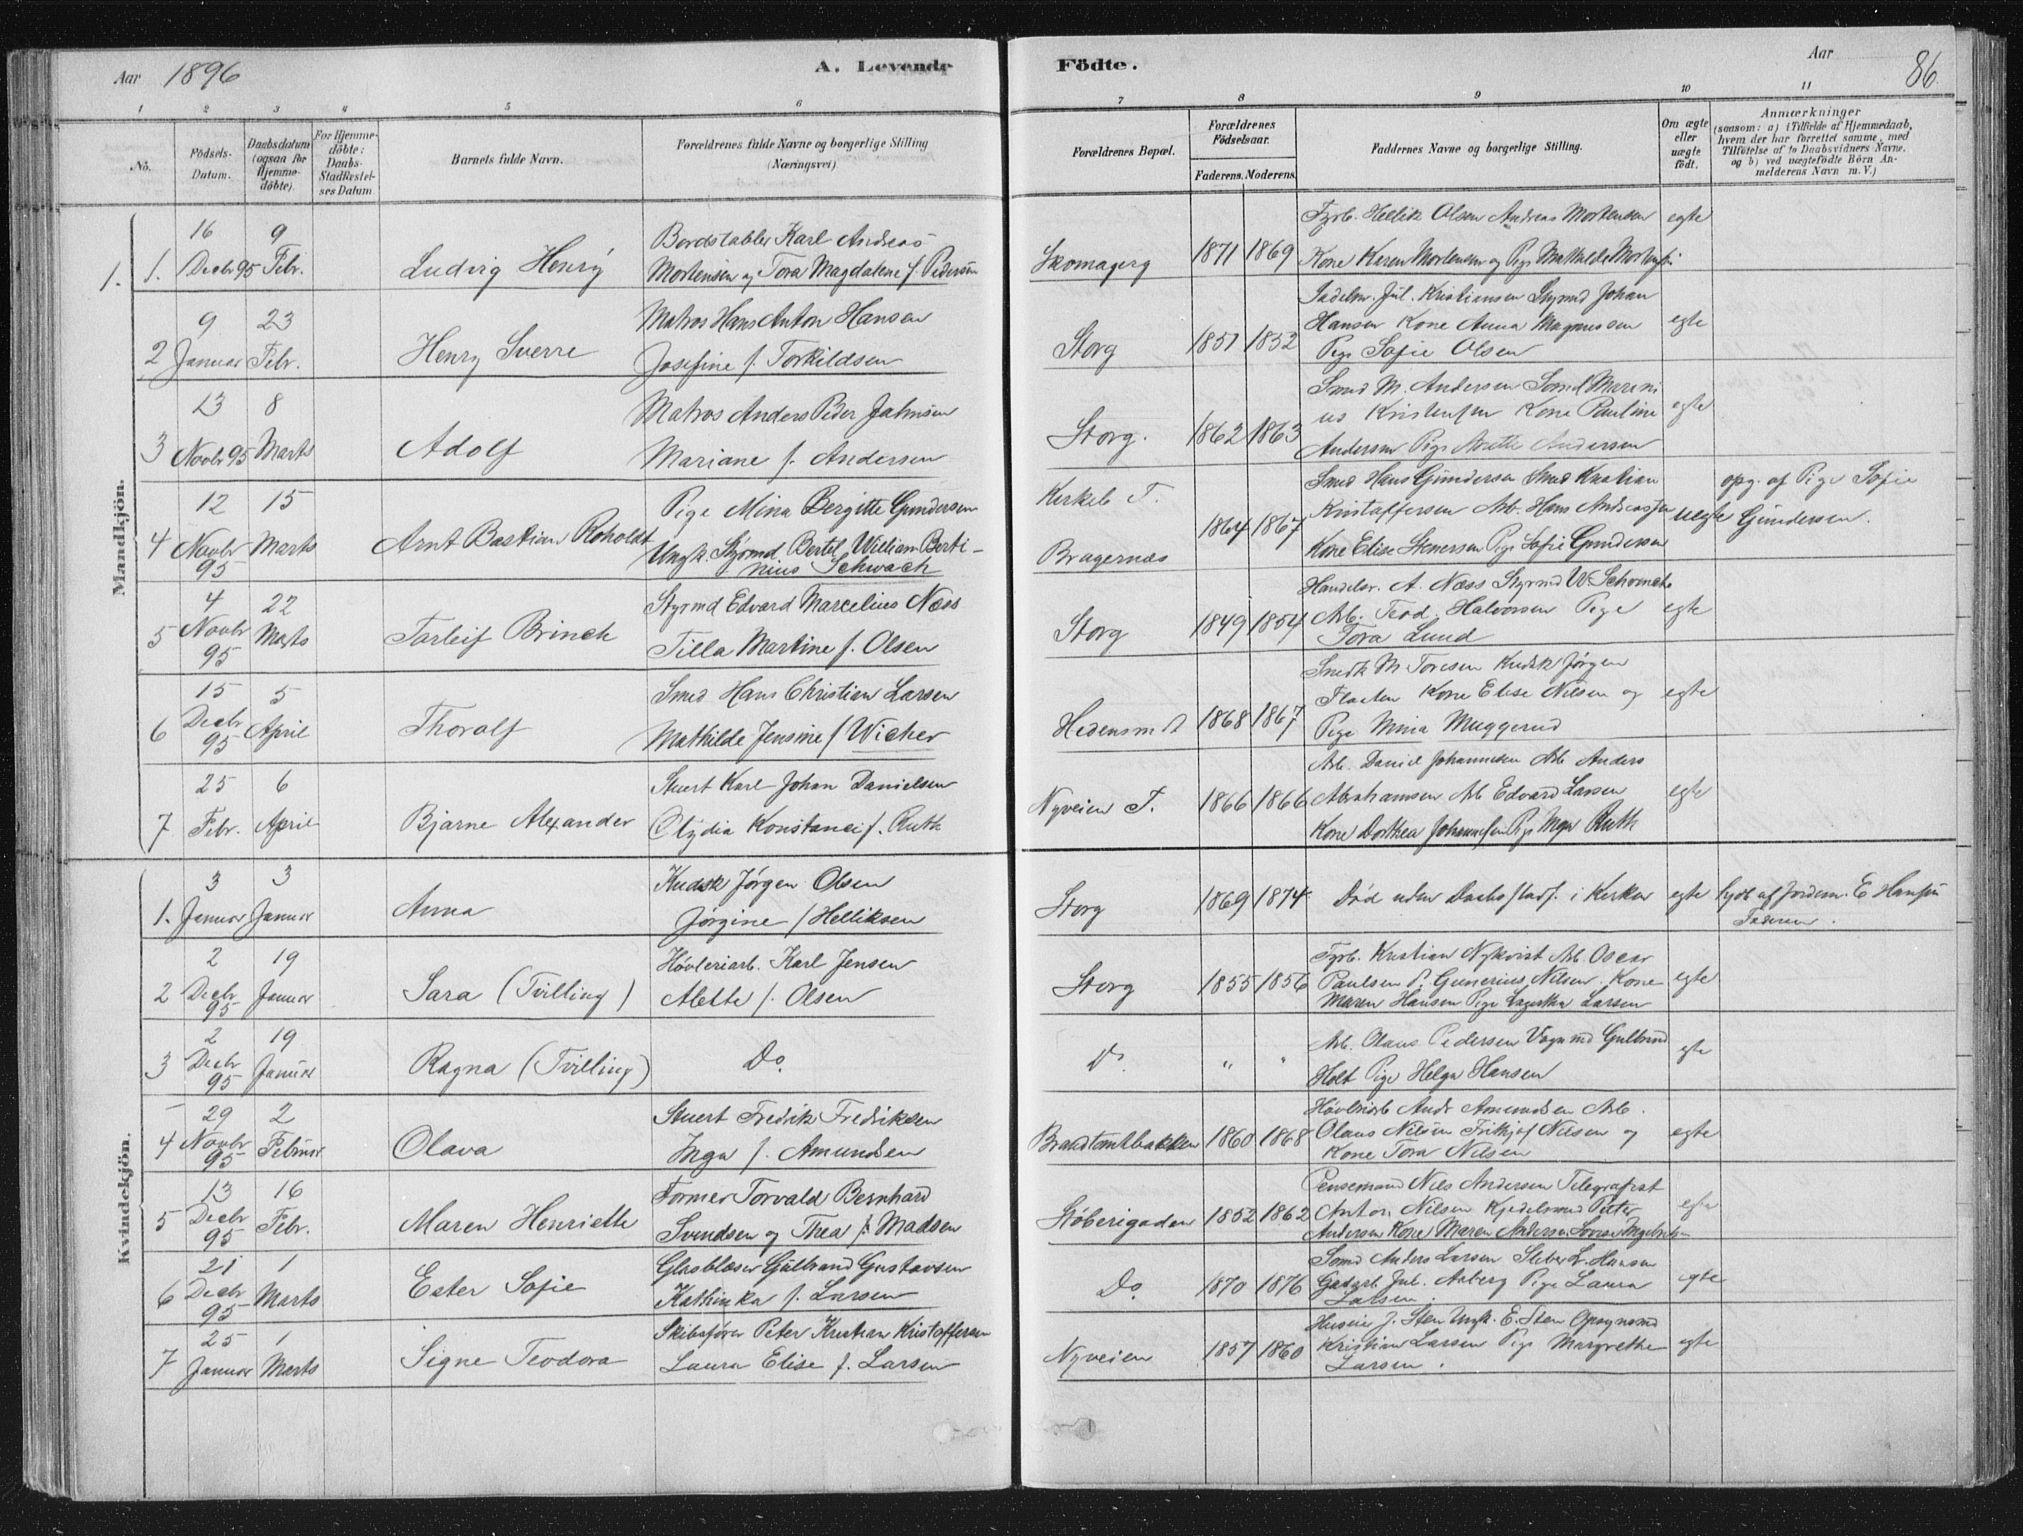 Aar 1896
A. Levende Födte.
Aar
86
1 2 3 4 5 6 7 8 9 10 11
No.
Födsels-Datum.
Daabsdatum (ogsaa for Hjemme-döbte).
For Hjemme-döbte: Daabs-Stadfæstel-ses Datum.
Barnets fulde Navn.
Forældrenes fulde Navne og borgerlige Stilling (Næringsvei)
Forældrenes Bopæl.
Forældrenes Födselsaar.
Faderens. Moderens.
Faddernes Navne og borgerlige Stilling.
Om ægte eller uægte födt.
Anmærkninger
(saasom: a) i Tilfælde af Hjemmedaab,
hvem der har forrettet samme, med
Tilföielse af to Daabsvidners Navne.
og b) ved uægtefödte Börn An-
melderens Navn m. V.)
Mandkjön.
1.
1. 16 Decbr 95 9 Febr. Ludvig Henry
Bordstabler Karl Andreas
Mortensen og Tora Magdalene f. Pedersen
Skomagerg 1871 1869
Fyrb. Hellik Olsen Andreas Mortensen
Kone Karen Mortensen og Pige Mathilde Mortensen
egte
2 9 Januar 23 Febr. Henry Sverre
Matros Hans Anton Hansen
Josefine f. Torkildsen
Storg 1851 1852
Jul. Kristiansen Styrmd Johan
Hansen Kone Anna Magnussen
Pige Sofie Olsen
egte
3 13 Novbr 95 8 Marts Adolf
Matros Anders Peder Jahnsen
Mariane f. Andersen
Storg. 1862 1863
Smed M. Andersen Somd Marini
us Kristensen Kone Pauline
Andersen Pige Andersen
egte
4 12 Novbr 95 15 Marts Arnt Bastian Roholdt
Pige Mina Bergitte Gundersen
Ungk. Styrmd. Bertel William Berti-
nius Schwach
Kirkeb T.
Bragernæs 1864 1867
Smed Hans Gundersen Smed Kristian
Kristoffersen Arb. Hans Andreassen
Kone Elise Stenersen Pige Sofie Gundersen
uegte
opg. af Pige Sofie
Gundersen.
5 4 Novbr 95 22 Marts Torleif Brinch
Styrmd Edvard Marcelius Næss
Tilla Martine f. Olsen
Storg 1849 1854
Handelsr. A. Næss Styrmd W. Schwach
Arb. Teod. Halvorsen Pige
Tora Lund
egte
6 15 Decbr 95 5 April Thoralf
Smed Hans Christian Larsen
Mathilde Jensine f Wicher
Hedensmd 1868 1867
Smedk M Toresen Kudsk Jørgen
Flaaten Kone Elise Nilsen og
Pige Mina Muggerud
egte
7 25 Febr. 6 April Bjarne Alexander
Stuert Karl Johan Danielsen
Olydia Konstance f. Ruth
Nyveien T. 1866 1866
Arb. Daniel Johannesen Arb Anders
Abrahamsen Arb Edvard Larsen
Kone Dorthea Johannesen Pige Inga Ruth
egte
Kvindekjön.
1. 3 Januar 3 Januar Anna
Kudsk Jørgen Olsen
Jørgine f Helliksen
Storg 1869 1874
Død uden Daabsstadf. i Kirken
egte
hjdb af Jordem. E Hansen
Faderen.
2 2 Decbr 95 19 Januar Sara (Tvilling)
Høvleriarb. Karl Jensen
Alette f. Olsen
Storg 1855 1856
Fyrb. Kristian Nykvist Arb. Oscar
Paulsen P. Gunerius Nilsen. Kone
Maren Hansen Pige Lagertha Larsen
egte
3 2 Decbr 95 19 Januar Ragna (Tvilling)
Do.
Do. " "
Arb. Olaus Pedersen Vognmd Gulbrand
Holt Pige Helga Hansen
egte
4 29 Novbr 95 2 Februar Olava
Stuert Fredrik Fredriksen
Inga f. Amundsen
Brandtomtbakken 1860 1868
Høvleriarb Andr Amundsen Arb.
Olaus Nilsen Frithjof Nilsen og
Kone Tora Nilsen
egte
5 13 Decbr 95 16 Febr. Maren Henriette
Former Torvald Bernhard
Svendsen og Thea f. Madsen
Støberigaden 1852 1862
Pensemand Nils Andersen Telegrafist
Anton Nilsen Kjedelsmd Peter
Andersen Kone Maren Andersen Lovise Ingebretsen
egte
6 21 Decbr 95 1 Marts Ester Sofie
Glasblæser Gulbrand Gustavsen
Kathinka f. Larsen
Do. 1870 1876
Somd Anders Larsen Støber L. Hansen
Gadarb Jul. Aaberg Pige Laura
Larsen.
egte
7 25 Januar 1 Marts Signe Teodora
Skibsfører Peter Kristian Kristoffersen
Laura Elise f. Larsen
Nyveien 1857 1860
Huseier J. Sten Ungk. E. Sten Opsynsmd
Kristian Larsen Pige Margrethe
Larsen.
egte